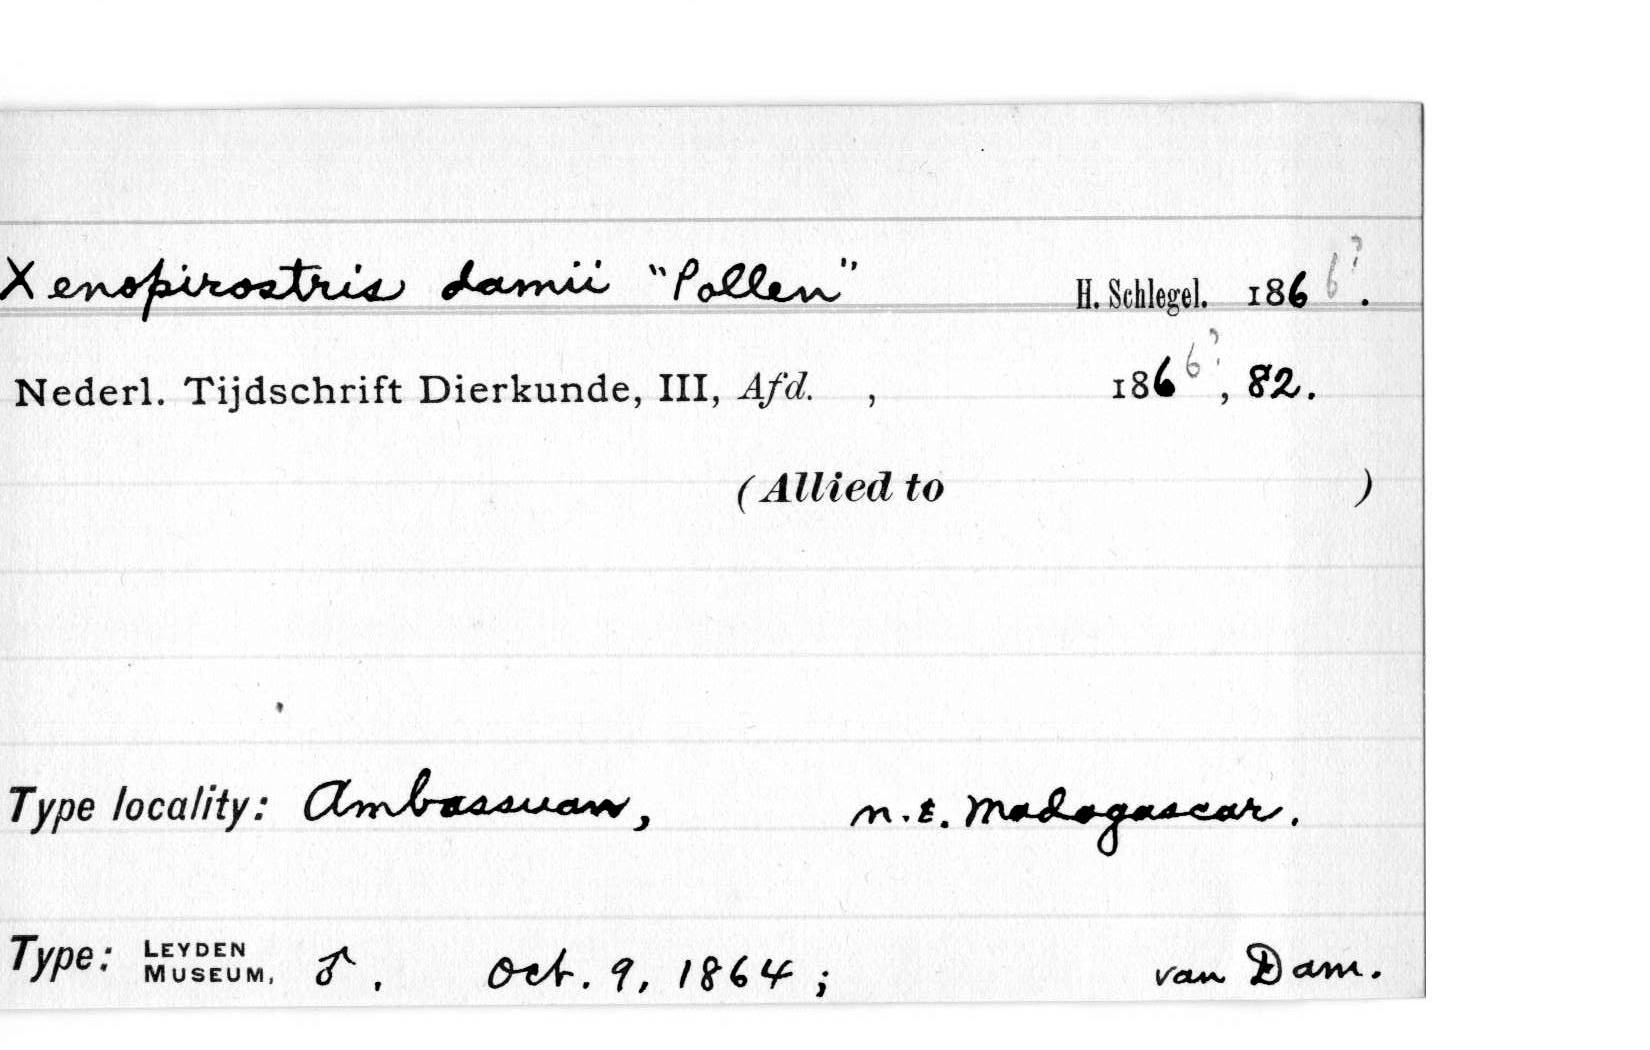 Xenopirostris damii "Pollen" H. Schlegel. 1866?.
Nederl. Tijdschrift Dierkunde, III, Afd. , 1866?, 82.
(Allied to )
Type locality: Ambassuan, n.E. Madagascar.
Type: LEYDEN MUSEUM, ♂. Oct. 9, 1864; van Dam.